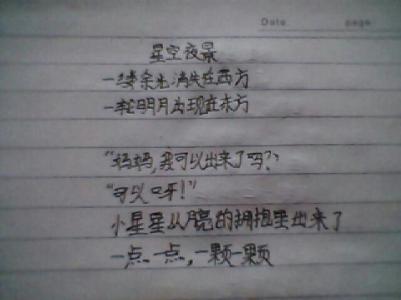 Date page
星空夜景
一缕余光消失在西方
一轮明月出现在东方
"妈妈,我可以出来了吗?"
"可以呀!"
小星星从月亮的拥抱里出来了
一点一点,一颗一颗